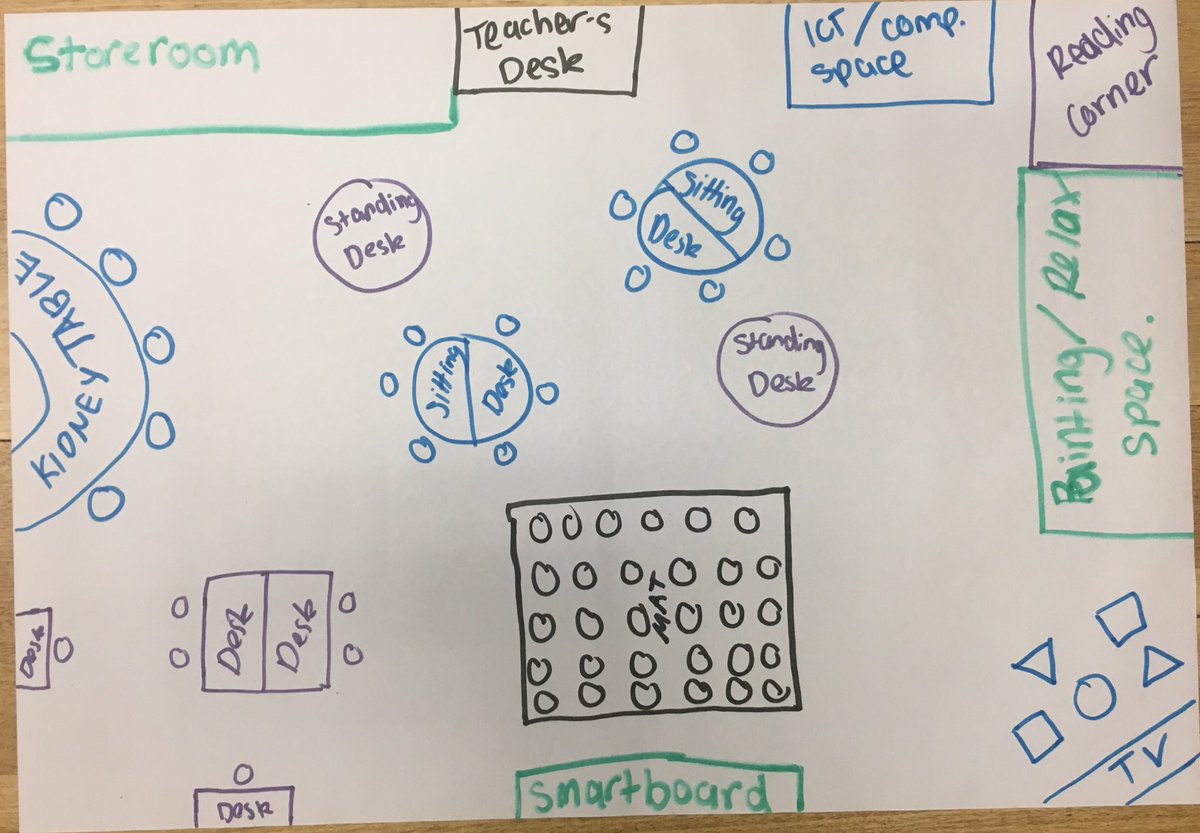 Storeroom
Teacher's
Desk
ICT / comp.
space
Reading
Corner
Standing
Desk
Sitting
Desk
KIDNEY TABLE
Sitting Desk
Standing
Desk
Painting / Relax
Space.
MAT
Desk
Desk Desk
Desk
Smartboard
TV